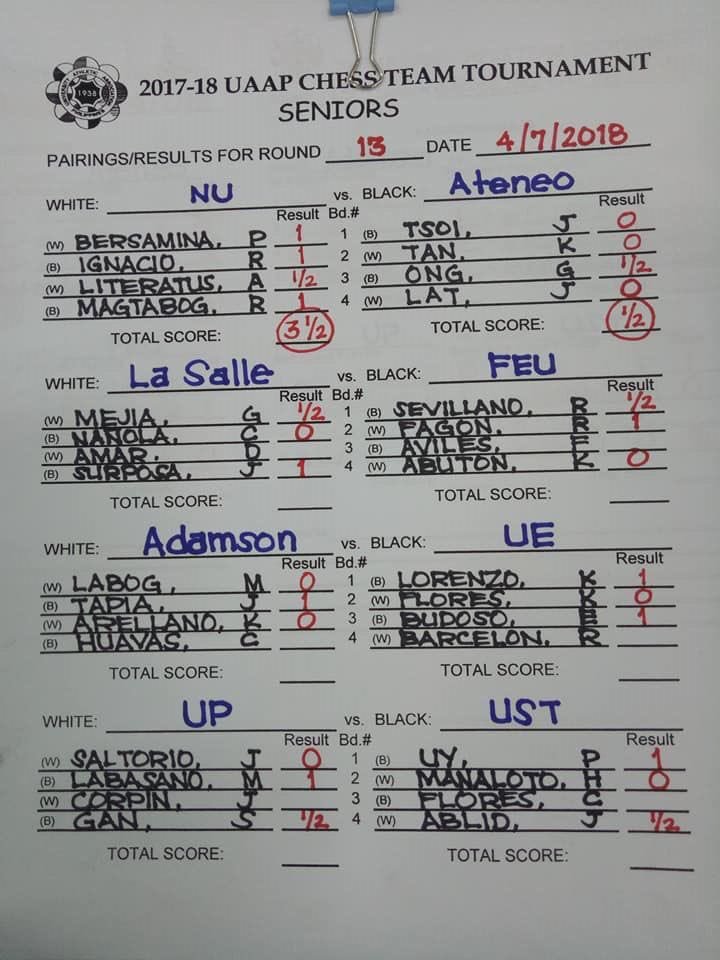 UNIVERSITY ATHLETIC ASSOCIATION PHILIPPINES
1938
2017-18 UAAP CHESS TEAM TOURNAMENT
SENIORS
PAIRINGS/RESULTS FOR ROUND 13 DATE 4/7/2018
WHITE: NU vs. BLACK: Ateneo
Result Bd.# Result
(W) BERSAMINA, P 1 1 (B) TSOI, J 0
(B) IGNACIO, R 1 2 (W) TAN, K 0
(W) LITERATUS, A 1/2 3 (B) ONG, G 1/2
(B) MAGTABOG, R 1 4 (W) LAT, J 0
TOTAL SCORE: 3 1/2 TOTAL SCORE: 1/2
WHITE: La Salle vs. BLACK: FEU
Result Bd.# Result
(W) MEJIA, G 1/2 1 (B) SEVILLANO, R 1/2
(B) NANOLA, C 0 2 (W) FAGON, R 1
(W) AMAR, D 3 (B) AVILES, F
(B) SURPOSA, J 1 4 (W) ABUTON, K 0
TOTAL SCORE: TOTAL SCORE:
WHITE: Adamson vs. BLACK: UE
Result Bd.# Result
(W) LABOG, M 0 1 (B) LORENZO, K 1
(B) TAPIA, J 1 2 (W) FLORES, K 0
(W) ARELLANO, K 0 3 (B) BUDOSO, E 1
(B) HUAVAS, C 4 (W) BARCELON, R
TOTAL SCORE: TOTAL SCORE:
WHITE: UP vs. BLACK: UST
Result Bd.# Result
(W) SALTORIO, J 0 1 (B) UY, P 1
(B) LABASANO, M 1 2 (W) MANALOTO, H 0
(W) CORPIN, J 3 (B) FLORES, C
(B) GAN, S 1/2 4 (W) ABLID, J 1/2
TOTAL SCORE: TOTAL SCORE: